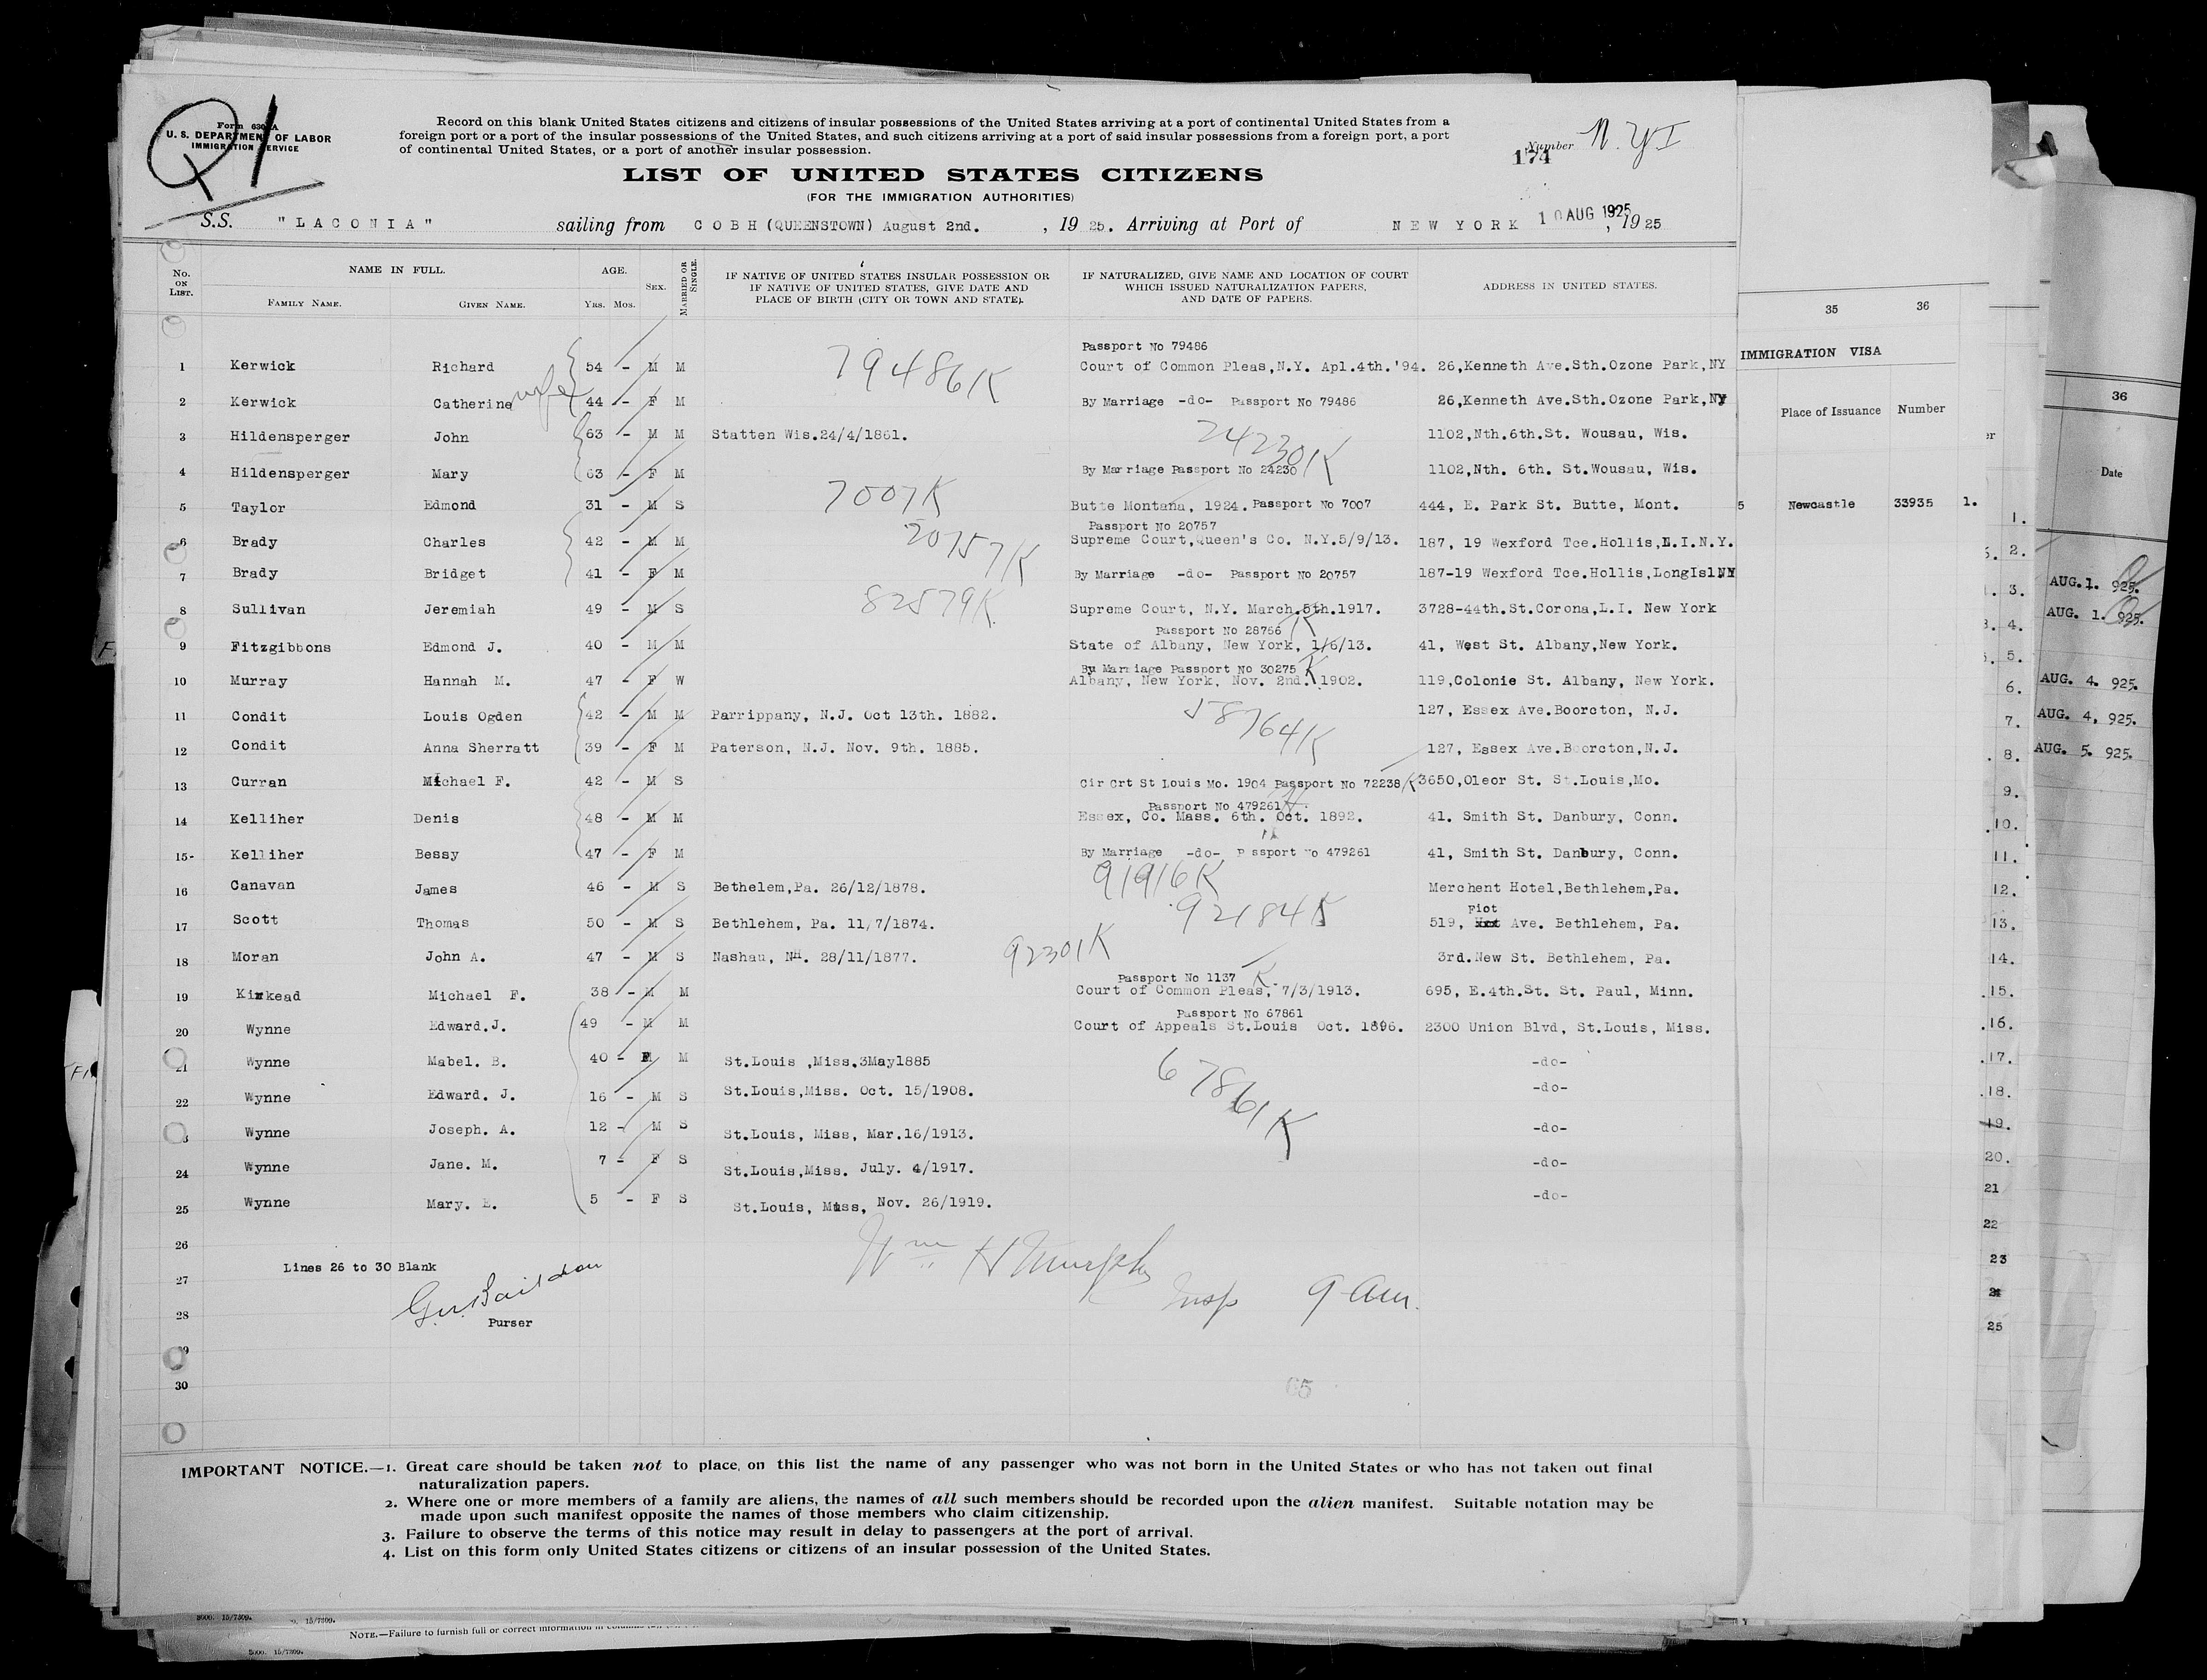 Q1
Form 630 A
U. S. DEPARTMENT OF LABOR
IMMIGRATION SERVICE
Record on this blank United States citizens and citizens of insular possessions of the United States arriving at a port of continental United States from a
foreign port or a port of the insular possessions of the United States, and such citizens arriving at a port of said insular possessions from a foreign port, a port
of continental United States, or a port of another insular possession.
Number N. Y I
174
LIST OF UNITED STATES CITIZENS
(FOR THE IMMIGRATION AUTHORITIES)
S.S. "LACONIA" sailing from COBH (QUEENSTOWN) August 2nd. , 19 25. Arriving at Port of NEW YORK 10 AUG 1925 , 19 25
No. ON LIST. NAME IN FULL. FAMILY NAME. GIVEN NAME. AGE. YRS. MOS. SEX. MARRIED OR SINGLE. IF NATIVE OF UNITED STATES INSULAR POSSESSION OR IF NATIVE OF UNITED STATES, GIVE DATE AND PLACE OF BIRTH (CITY OR TOWN AND STATE). IF NATURALIZED, GIVE NAME AND LOCATION OF COURT WHICH ISSUED NATURALIZATION PAPERS, AND DATE OF PAPERS. ADDRESS IN UNITED STATES.
Passport No 79486
1 Kerwick Richard 54 - M M 79486K Court of Common Pleas,N.Y. Apl.4th.'94. 26,Kenneth Ave.Sth.Ozone Park,NY
2 Kerwick Catherine wife 44 - F M By Marriage -do- Passport No 79486 26,Kenneth Ave.Sth.Ozone Park,NY
3 Hildensperger John 63 - M M Statten Wis.24/4/1861. 24230K 1102,Nth.6th.St. Wousau, Wis.
4 Hildensperger Mary 63 - F M By Marriage Passport No 24230 1102,Nth. 6th. St.Wousau, Wis.
5 Taylor Edmond 31 - M S 7007K Butte Montana, 1924. Passport No 7007 444, E. Park St. Butte, Mont.
Passport No 20757
6 Brady Charles 42 - M M 20757K Supreme Court,Queen's Co. N.Y.5/9/13. 187, 19 Wexford Tce.Hollis,L.I.N.Y.
7 Brady Bridget 41 - F M By Marriage -do- Passport No 20757 187-19 Wexford Tce.Hollis,LongIslNY
8 Sullivan Jeremiah 49 - M S 82579K Supreme Court, N.Y. March.5th.1917. 3728-44th.St.Corona,L.I. New York
Passport No 28756 K
9 Fitzgibbons Edmond J. 40 - M M State of Albany, New York, 1/6/13. 41, West St. Albany,New York.
By Marriage Passport No 30275 K
10 Murray Hannah M. 47 - F W Albany, New York, Nov. 2nd. 1902. 119,Colonie St. Albany, New York.
11 Condit Louis Ogden 42 - M M Parrippany, N.J. Oct 13th. 1882. 58764K 127, Essex Ave.Boorcton, N.J.
12 Condit Anna Sherratt 39 - F M Paterson, N.J. Nov. 9th. 1885. 127, Essex Ave.Boorcton,N.J.
13 Curran Michael F. 42 - M S Cir Crt St Louis Mo. 1904 Passport No 72238 K 3650,Oleor St. St.Louis,Mo.
Passport No 479261
14 Kelliher Denis 48 - M M Essex, Co. Mass. 6th. Oct. 1892. 41. Smith St. Danbury, Conn.
15- Kelliher Bessy 47 - F M By Marriage -do- Passport No 479261 41, Smith St. Danbury, Conn.
16 Canavan James 46 - M S Bethelem,Pa. 26/12/1878. 91916K Merchent Hotel,Bethlehem,Pa.
Fiot
17 Scott Thomas 50 - M S Bethlehem, Pa. 11/7/1874. 92184K 519, Ave. Bethlehem, Pa.
18 Moran John A. 47 - M S Nashau, NH. 28/11/1877. 92301K 3rd.New St. Bethlehem, Pa.
Passport No 1137 K
19 Kinkead Michael F. 38 - M M Court of Common Pleas, 7/3/1913. 695, E.4th.St. St. Paul, Minn.
Passport No 67861
20 Wynne Edward.J. 49 - M M Court of Appeals St.Louis Oct. 1896. 2300 Union Blvd, St.Louis, Miss.
21 Wynne Mabel. B. 40 - F M St.Louis ,Miss.3May1885 -do-
22 Wynne Edward. J. 16 - M S St.Louis,Miss. Oct. 15/1908. 67861K -do-
3 Wynne Joseph. A. 12 - M S St.Louis, Miss, Mar.16/1913. -do-
24 Wynne Jane. M. 7 - F S St.Louis,Miss. July. 4/1917. -do-
25 Wynne Mary. E. 5 - F S St.Louis, Miss, Nov. 26/1919. -do-
26
Lines 26 to 30 Blank
Wm H Murphy
27
Insp 9 am.
28
Purser
29
30
65
IMPORTANT NOTICE.—1. Great care should be taken not to place, on this list the name of any passenger who was not born in the United States or who has not taken out final
naturalization papers.
2. Where one or more members of a family are aliens, the names of all such members should be recorded upon the alien manifest. Suitable notation may be
made upon such manifest opposite the names of those members who claim citizenship.
3. Failure to observe the terms of this notice may result in delay to passengers at the port of arrival.
4. List on this form only United States citizens or citizens of an insular possession of the United States.
35 36
IMMIGRATION VISA
Place of Issuance Number
5 Newcastle 33935 1.
36
Date
1.
2.
3. AUG. 1. 925.
4. AUG. 1. 925.
5.
6. AUG. 4. 925.
7. AUG. 4, 925.
8. AUG. 5. 925.
9.
10.
11.
12.
13.
14.
15.
16.
17.
18.
19.
20.
21
22
23
24
25
8000. 15/7309.
15/7309.
NOTE.—Failure to furnish full or correct information in columns
8000. 15/7309.